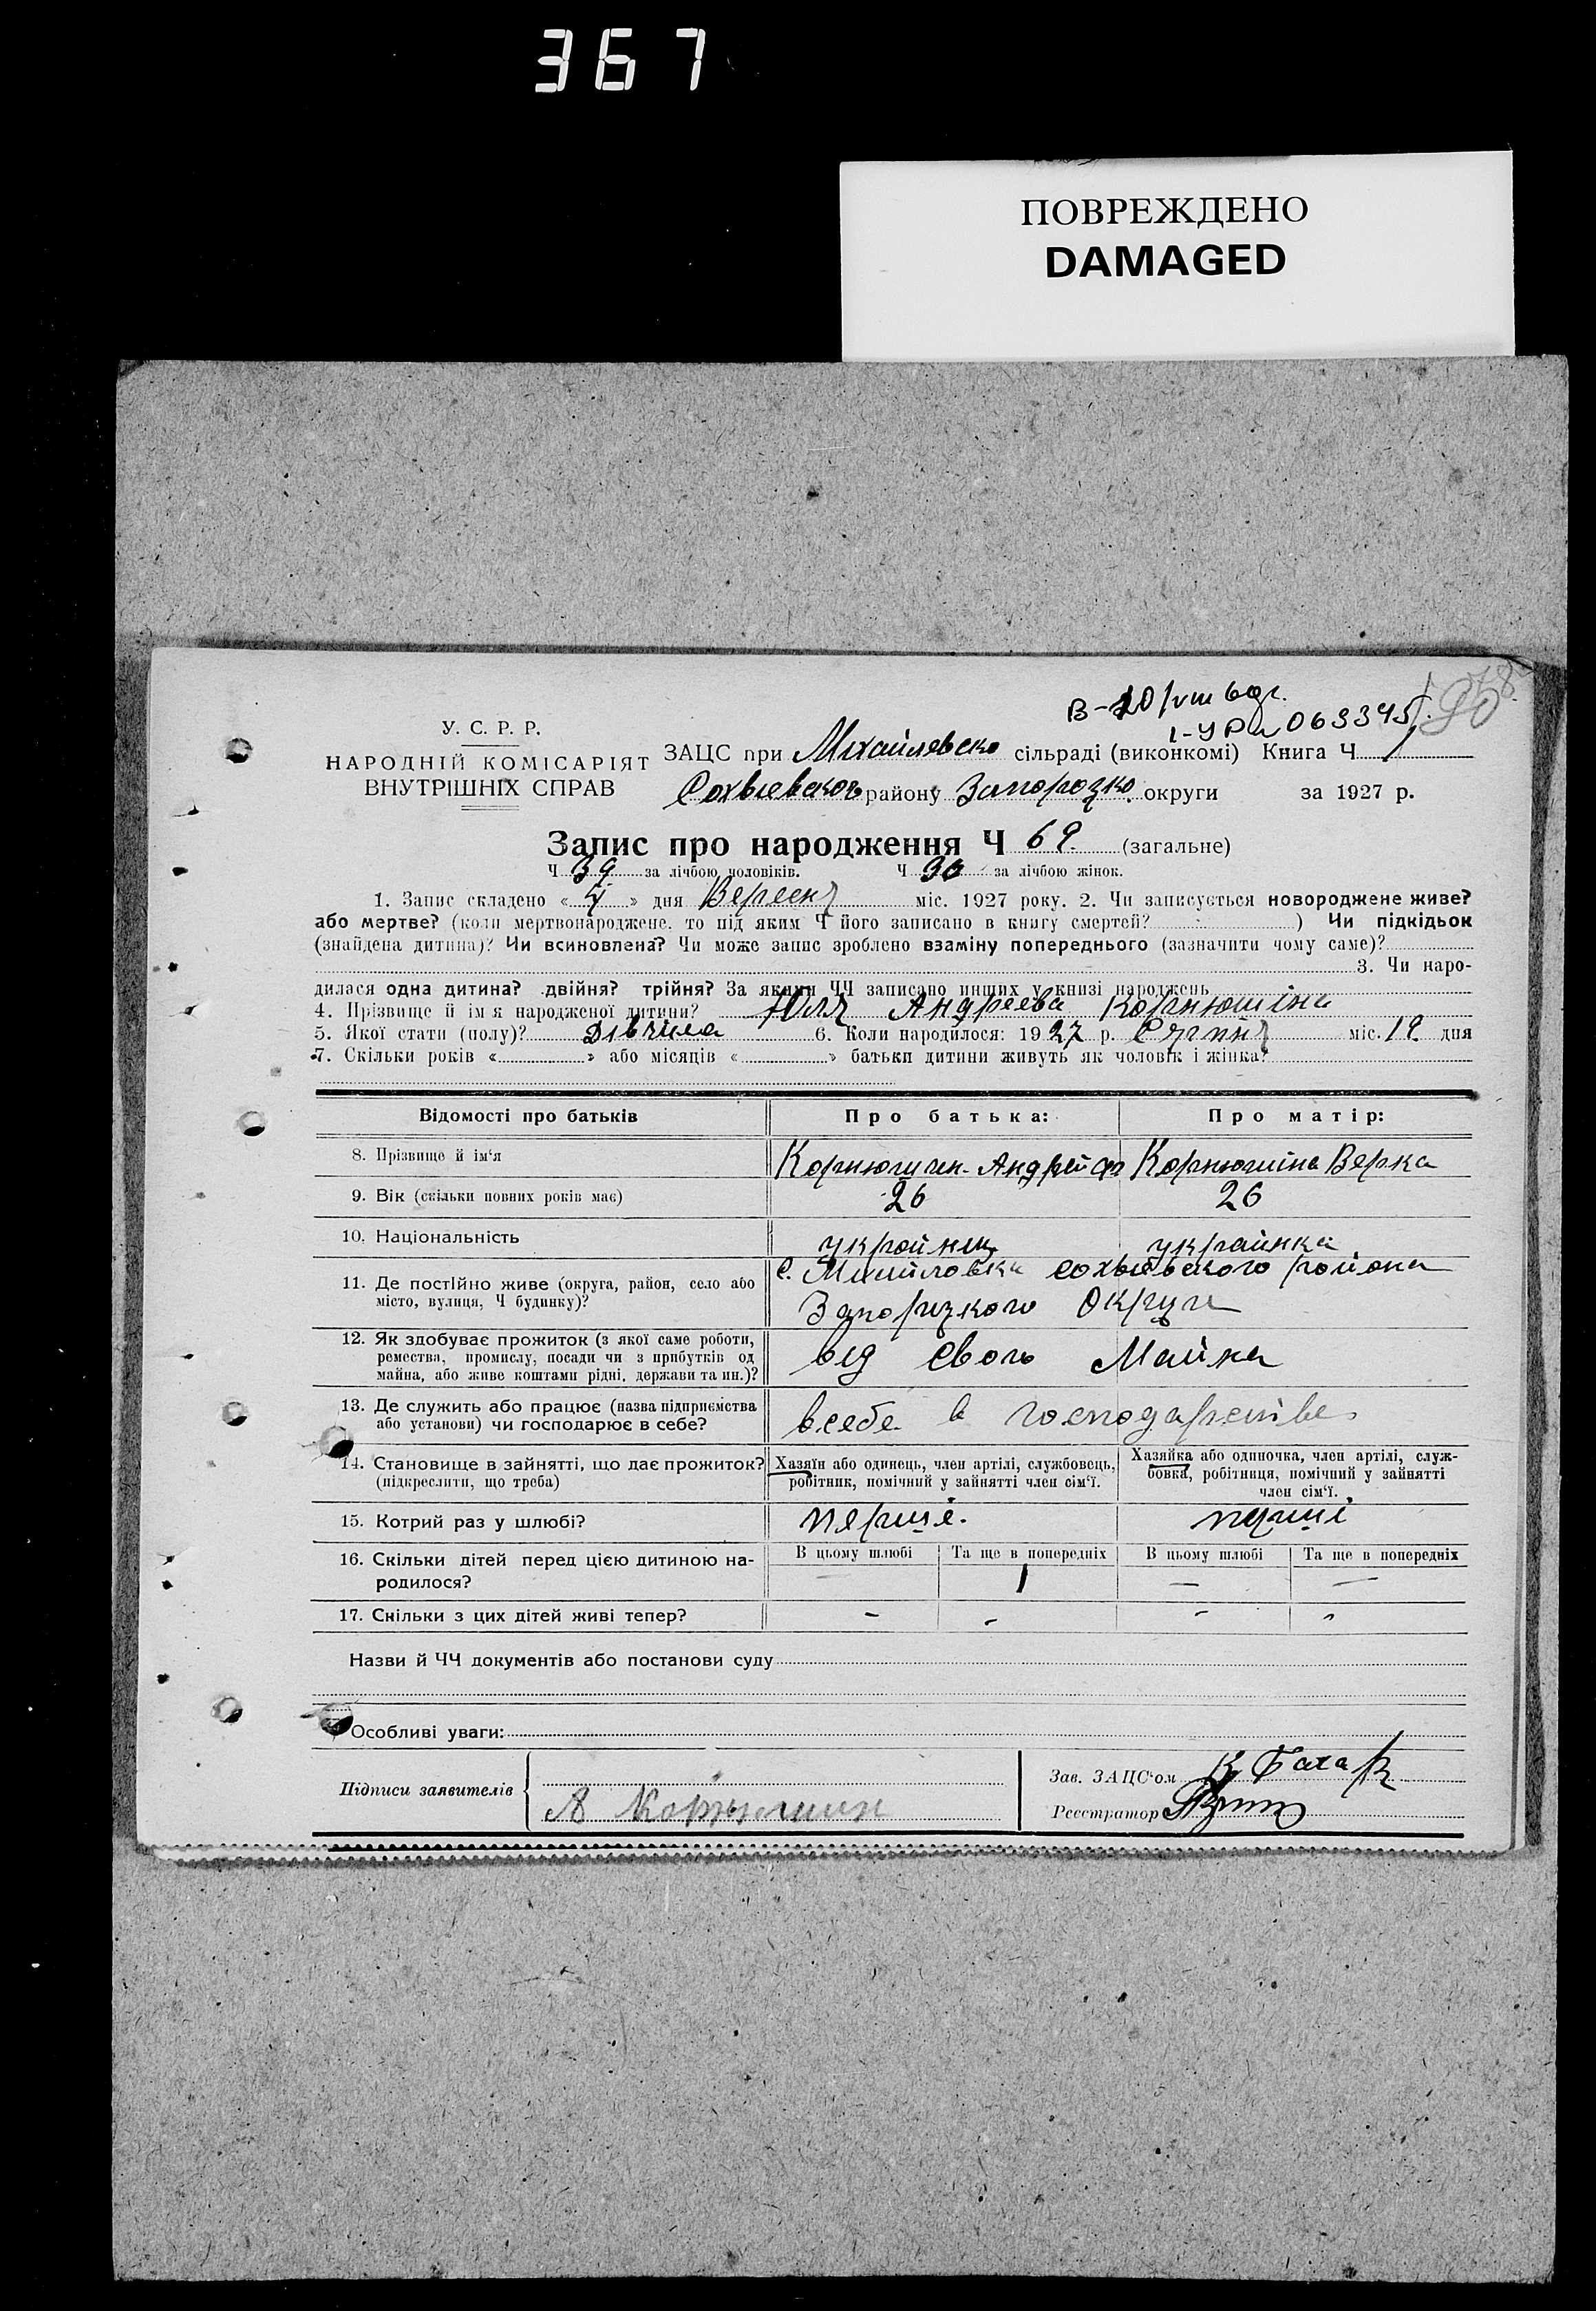 367
ПОВРЕЖДЕНО
DAMAGED
В-
І-УР № 063345
У. С. Р. Р.
НАРОДНІЙ КОМІСАРІЯТ
ВНУТРІШНІХ СПРАВ
ЗАЦС при Міхайлевско сільраді (виконкомі) Книга Ч 1
Сохвиевского району Запорозко округи за 1927 р.
Запис про народження Ч 69. (загальне)
Ч 39 за лічбою чоловіків. Ч 30 за лічбою жінок.
1. Запис складено « 4 » дня Вересня міс. 1927 року. 2. Чи записується новороджене живе?
або мертве? (коли мертвонароджене, то під яким Ч його записано в книгу смертей? ) Чи підкідьок
(знайдена дитина)? Чи всиновлена? Чи може запис зроблено взаміну попереднього (зазначити чому саме)?
3. Чи наро-
дилася одна дитина? двійня? трійня? За якими ЧЧ записано инших у книзі народжень
4. Прізвище й ім'я народженої дитини? Юля Андреева Корнюшіна
5. Якої стати (полу)? Дівчіна 6. Коли народилося: 1927 р. Серпня міс. 19 дня
7. Скільки років « » або місяців « » батьки дитини живуть як чоловік і жінка?
Відомості про батьків Про батька: Про матір:
8. Прізвище й ім'я Корнюшин Андрей Корнюшіна Верка
9. Вік (скільки повних років має) 26 26
10. Національність украйнец украинка
11. Де постійно живе (округа, район, село або
місто, вулиця, Ч будинку)?
с. Михайловка Сохвиевского района
Запоризкого Округи
12. Як здобуває прожиток (з якої саме роботи,
ремества, промислу, посади чи з прибутків од
майна, або живе коштами рідні, держави та ин.)?
від Свого Майна
13. Де служить або працює (назва підприємства
або установи) чи господарює в себе?
в себе в господарстве
14. Становище в зайнятті, що дає прожиток?
(підкреслити, що треба)
Хазяїн або одинець, член артілі, службовець,
робітник, помічний у зайнятті член сім'ї.
Хазяйка або одиночка, член артілі, служ-
бовка, робітниця, помічний у зайнятті
член сім'ї.
15. Котрий раз у шлюбі? перше. перші
16. Скільки дітей перед цією дитиною на-
родилося?
В цьому шлюбі Та ще в попередніх В цьому шлюбі Та ще в попередніх
— 1 — —
17. Скільки з цих дітей живі тепер? - - - -
Назви й ЧЧ документів або постанови суду
Особливі уваги:
Підписи заявителів
А Корнюшин
Зав. ЗАЦС'ом
Реєстратор